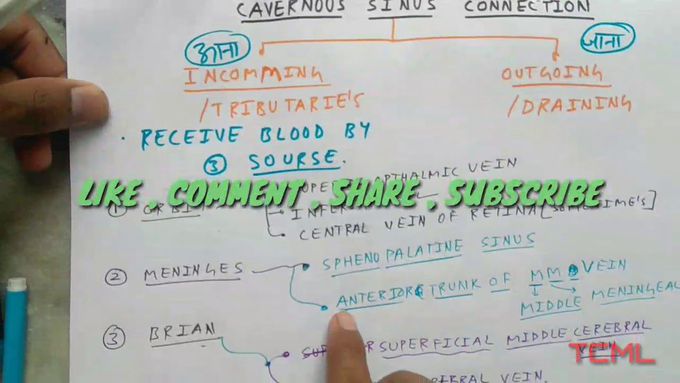 CAVERNOUS SINUS CONNECTION
आना
जाना
INCOMMING
OUTGOING
/TRIBUTARIE'S
/DRAINING
• RECEIVE BLOOD BY
③ SOURSE.
OPTHALMIC VEIN
LIKE , COMMENT , SHARE , SUBSCRIBE
①
CENTRAL VEIN OF RETINA [SOMETIME'S]
② MENINGES
SPHENO PALATINE SINUS
ANTERIOR TRUNK OF MM VEIN
MIDDLE MENINGEAL
③ BRIAN
SUPERFICIAL MIDDLE CEREBRAL
VEIN
TCML
VEIN.